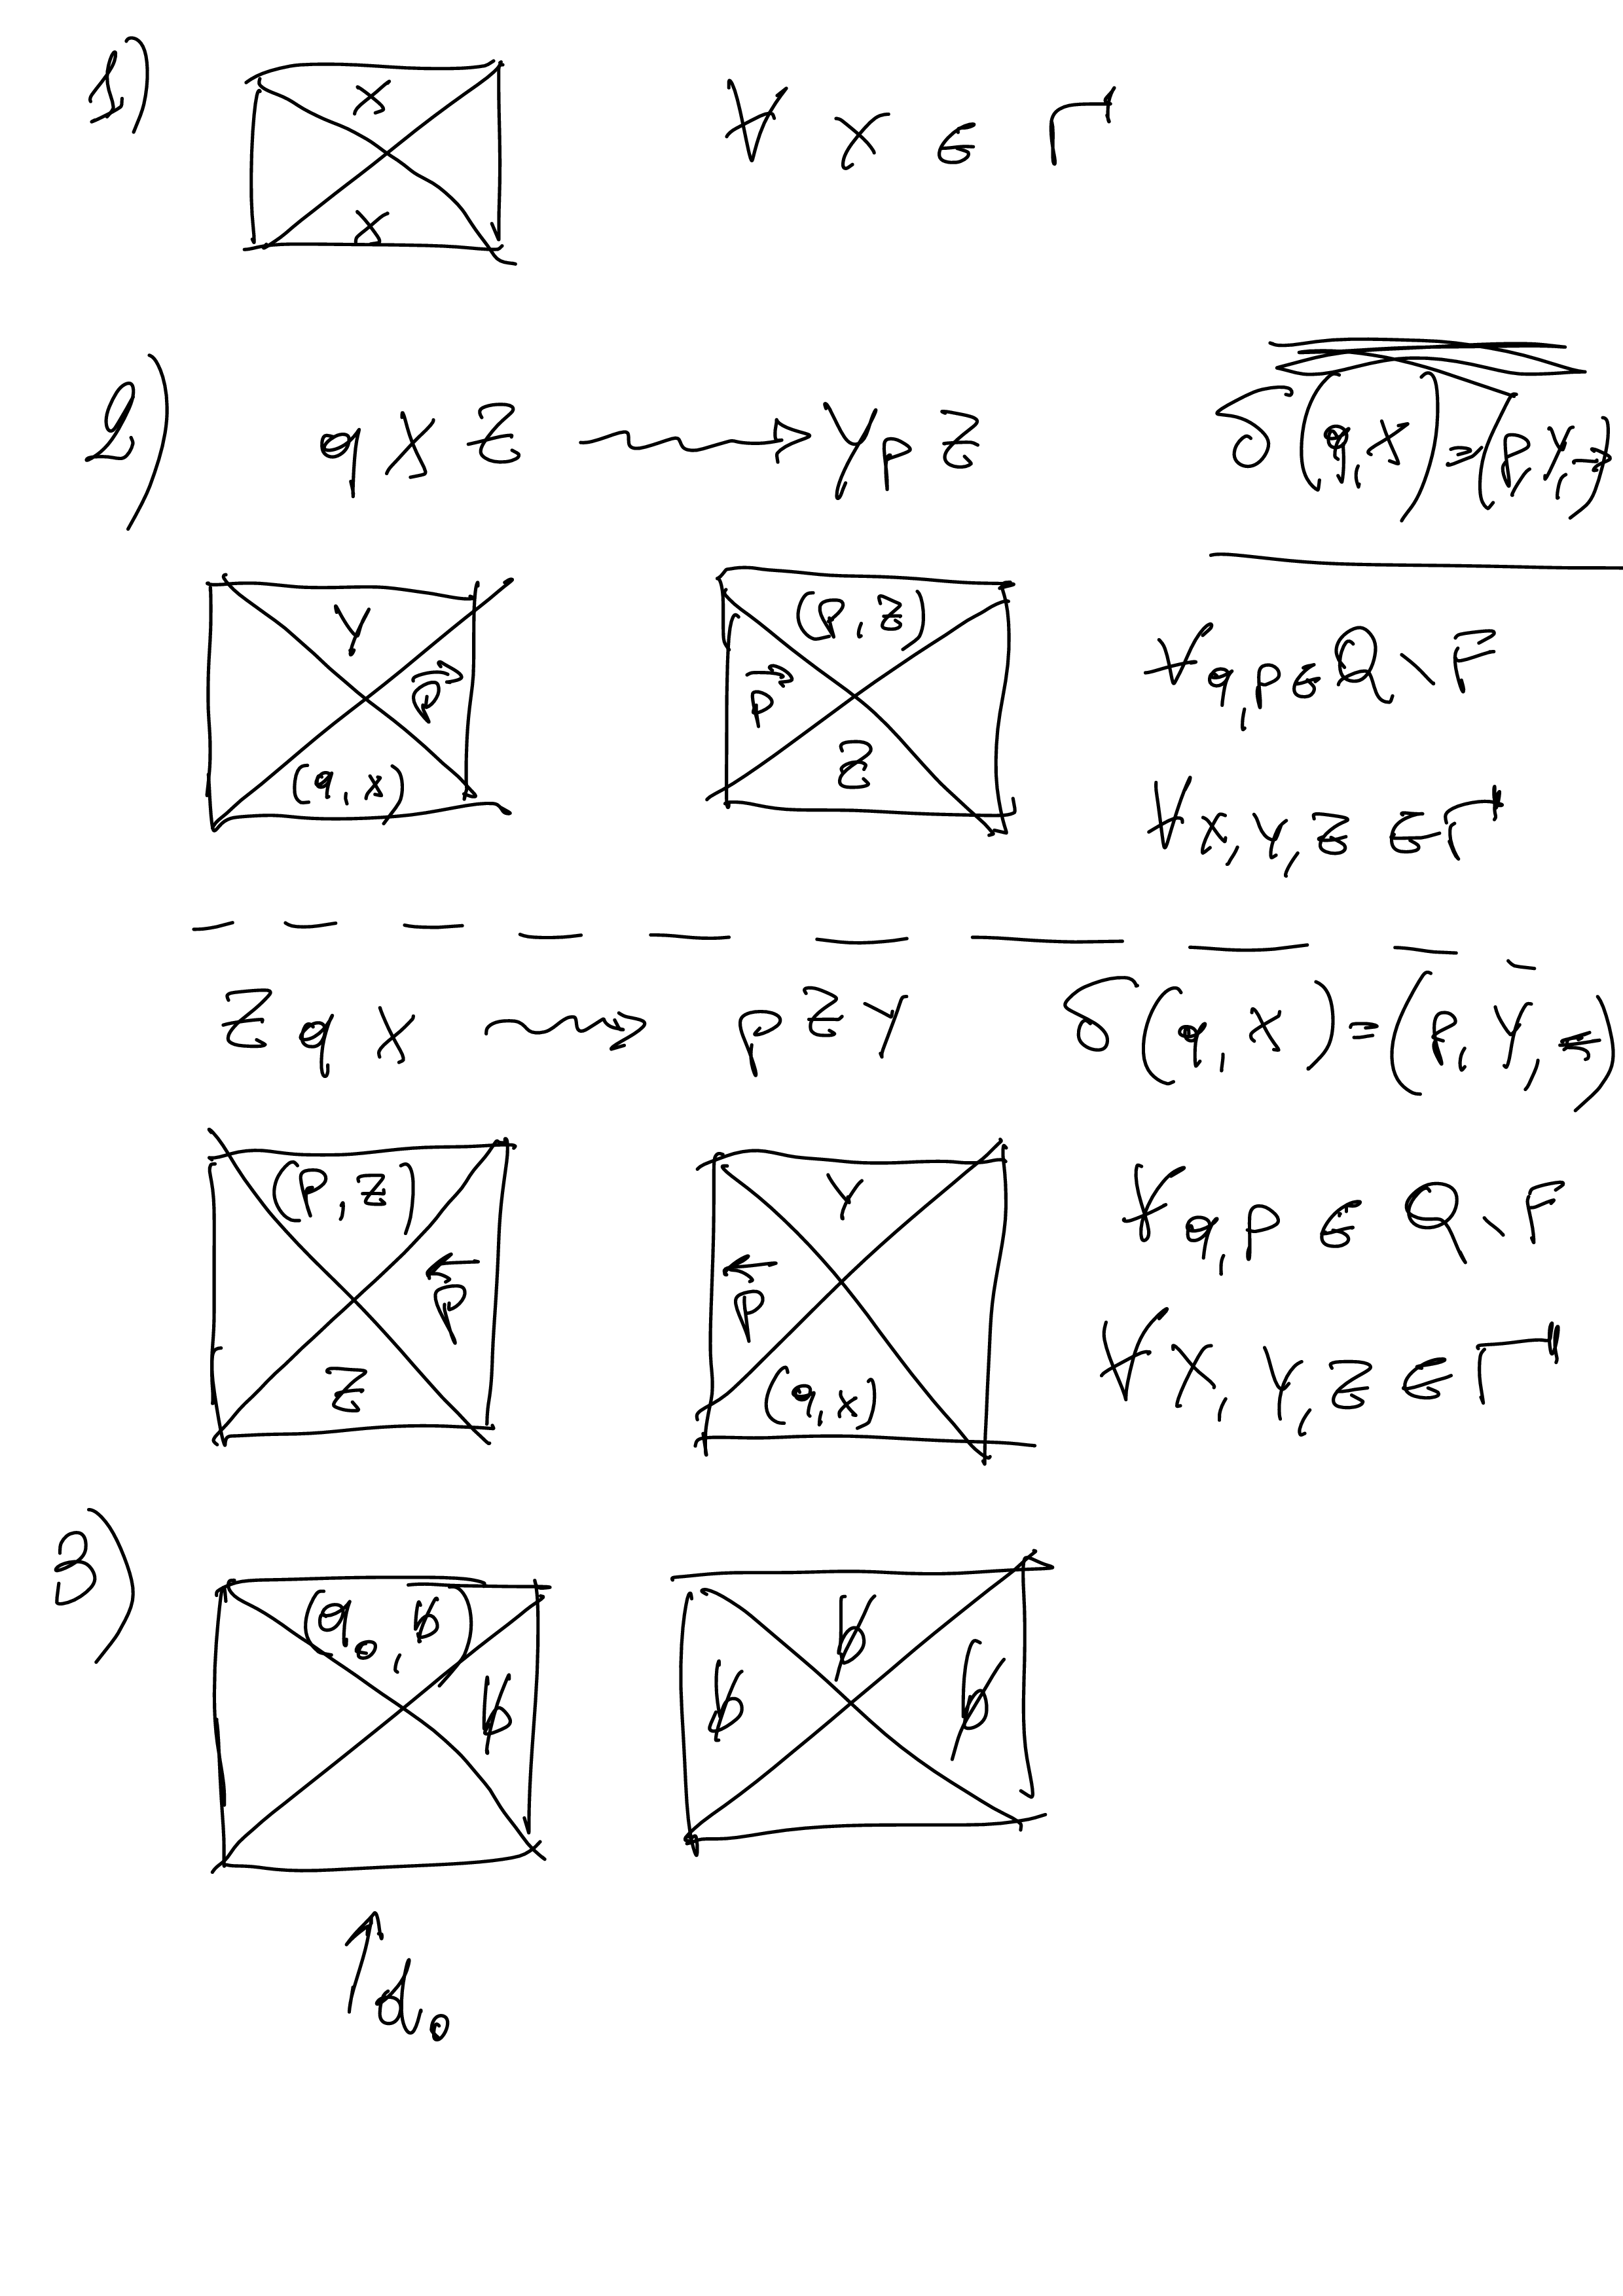 1)
X
∀ x ∈ Γ
X
2)
q X Z ⟿ Y p Z
δ(q, X) = (p, Y, →)
Y
p→
(q, x)
(p, z)
p→
Z
∀ q, p ∈ Q \ F
∀ x, y, z ∈ Γ
Z q X ⟿ p Z Y
δ(q, X) = (p, Y, ←)
(p, z)
←p
Z
Y
←p
(q, x)
∀ q, p ∈ Q \ F
∀ x, y, z ∈ Γ
3)
(q₀, b)
b
b̸
b̸
b̸
↑ d₀